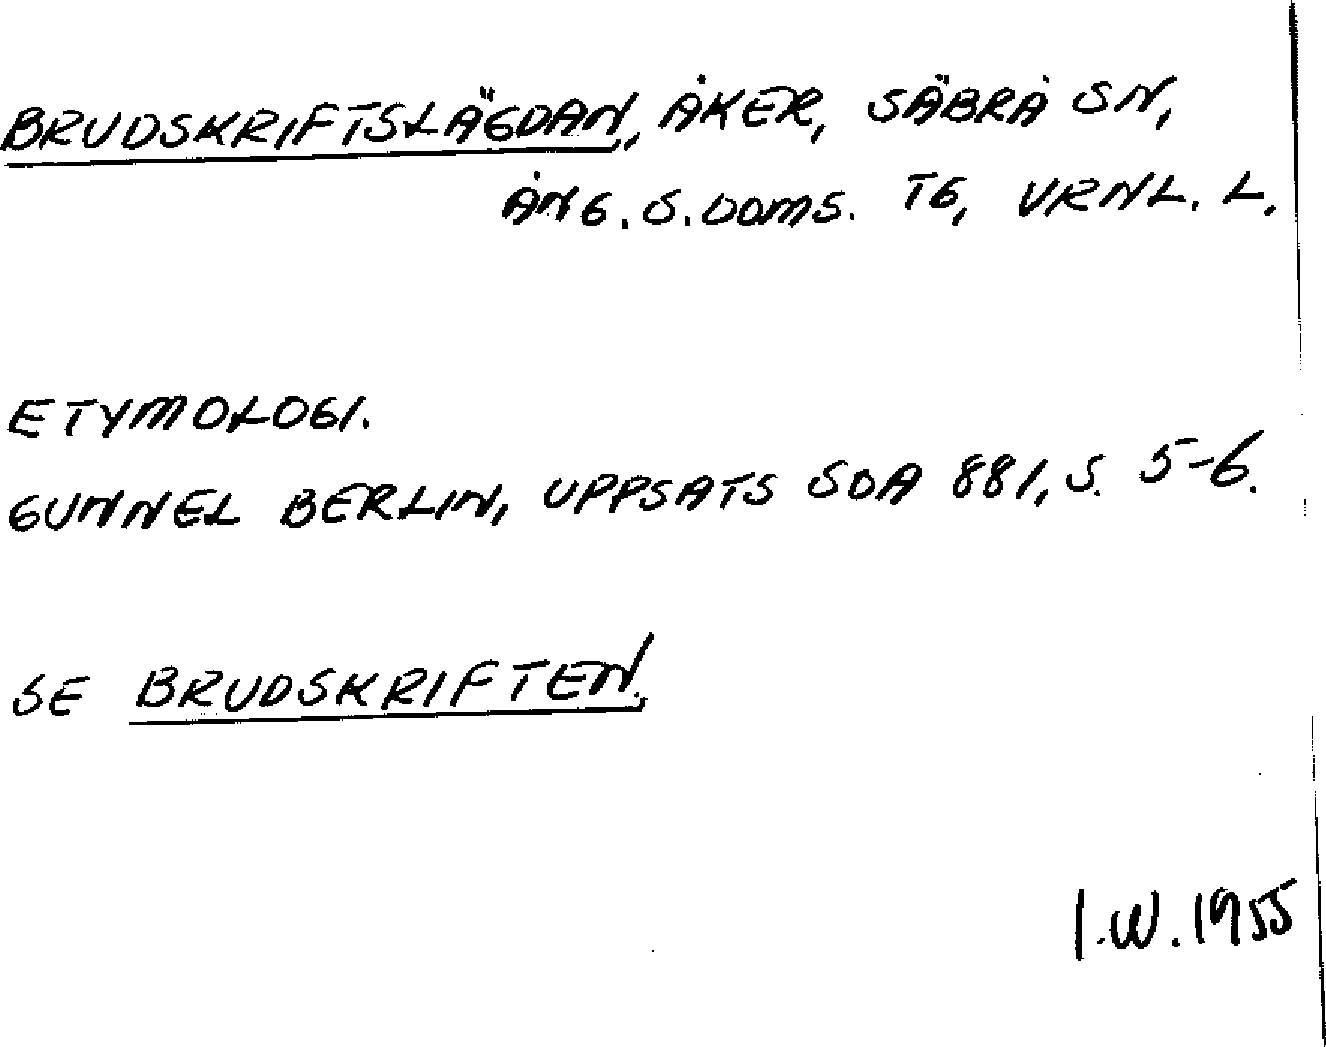 BRUDSKRIFTSLÄGDAN, ÅKER, SÄBRÅ SN,
ÅNG. S. DOMS. TG, VRNL. L.
ETYMOLOGI.
GUNNEL BERLIN, UPPSATS SOA 881, S. 5-6.
SE BRUDSKRIFTEN.
I.W. 1955